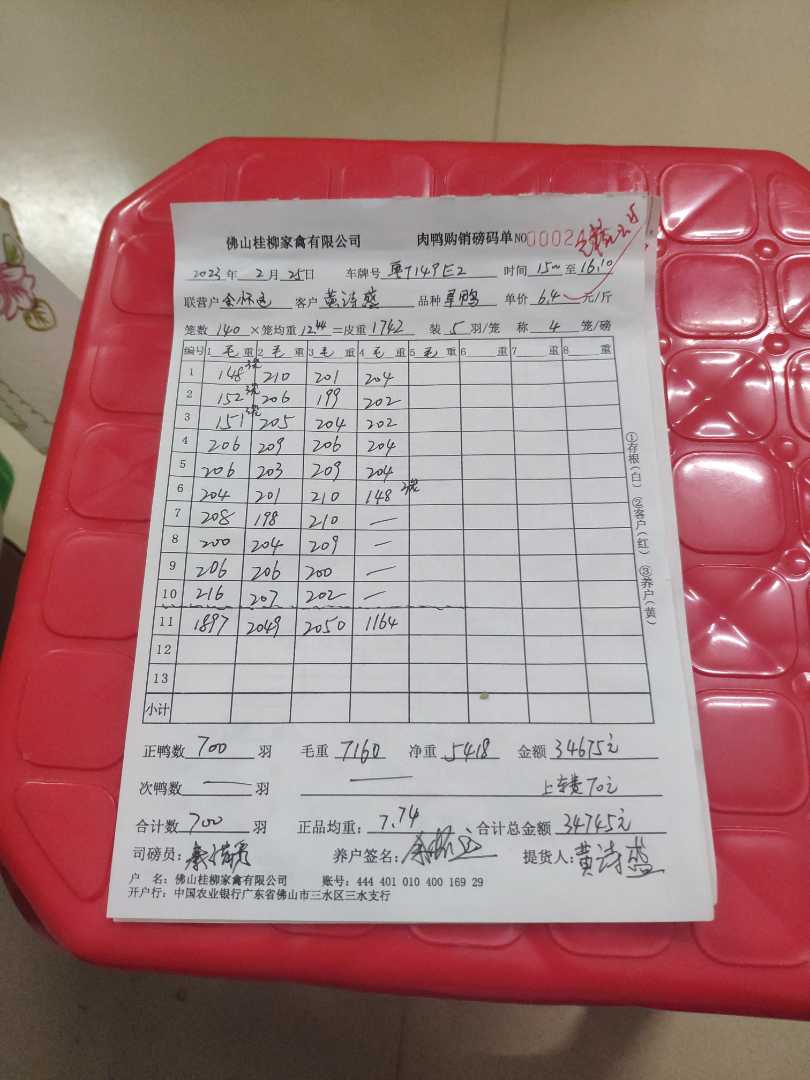 佛山桂柳家禽有限公司 肉鸭购销磅码单 NO 00024
2023年 2月 25日 车牌号 粤T149E2 时间 15 至 16:10
联营户 客户 黄诗盛 品种 单价 6.4 元/斤
笼数 140 ×笼均重 12.44 =皮重 1742 装 5 羽/笼 称 4 笼/磅
编号 1 毛 重 2 毛 重 3 毛 重 4 毛 重 5 毛 重 6 重 7 重 8 重
1 148 3笼 210 201 204
2 152 3笼 206 199 202
3 151 3笼 205 204 202
4 206 209 206 204
5 206 203 209 204
6 204 201 210 148 3笼
7 208 198 210 —
8 200 204 209 —
9 206 206 200 —
10 216 207 202 —
11 1897 2049 2050 1164
12
13
小计
①存根(白) ②客户(红) ③养户(黄)
正鸭数 700 羽 毛重 7160 净重 5418 金额 34675元
次鸭数 — 羽 — 上车费70元
合计数 700 羽 正品均重: 7.74 合计总金额 34745元
司磅员: 养户签名: 提货人: 黄诗盛
户 名: 佛山桂柳家禽有限公司 账号: 444 401 010 400 169 29
开户行: 中国农业银行广东省佛山市三水区三水支行